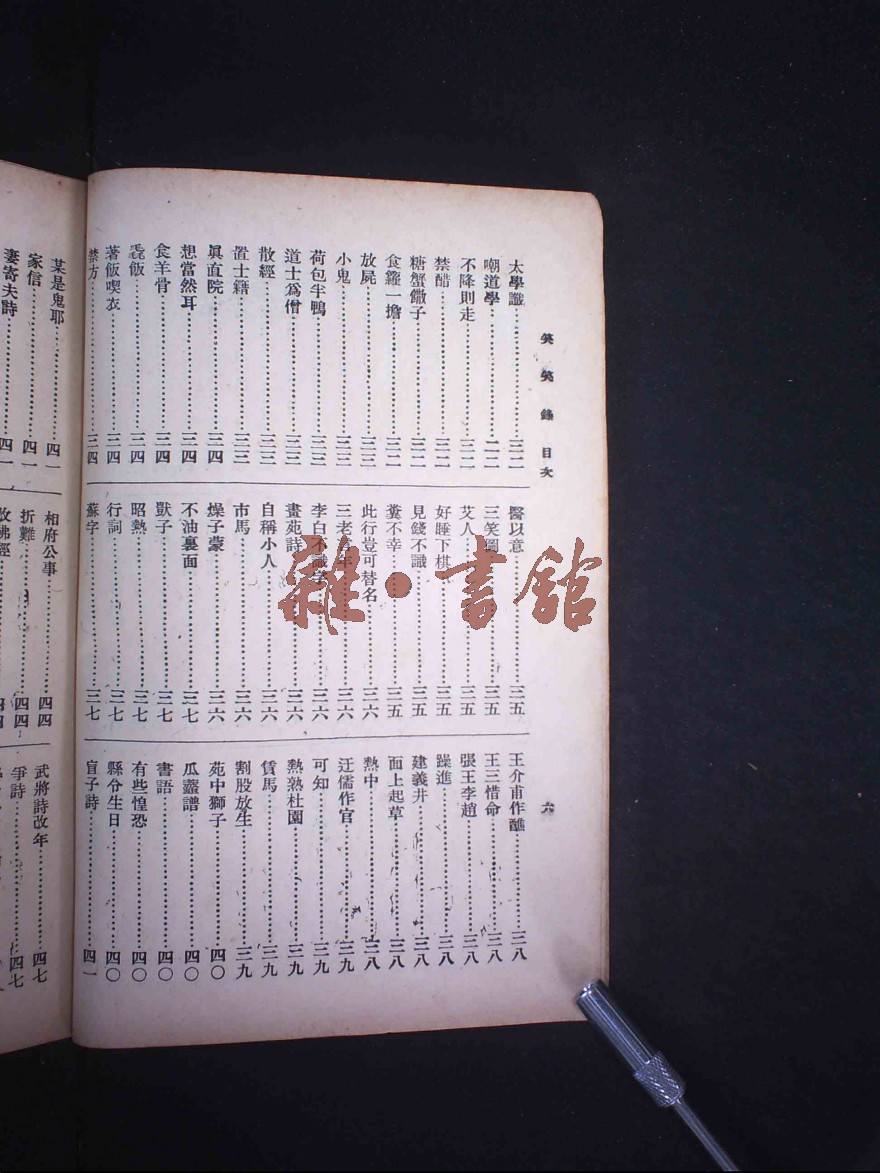 笑笑錄目次
六
太學讖……三二
嘲道學……三二
不降則走……三二
禁醋……三二
糖蟹饊子……三二
食籮一擔……三二
放屍……三三
小鬼……三三
荷包半鴨……三三
道士爲僧……三三
散經……三三
置士籍……三三
眞直院……三四
想當然耳……三四
食羊骨……三四
毳飯……三四
著飯喫衣……三四
禁方……三四
醫以意……三五
三笑圖……三五
艾人……三五
好睡下棋……三五
見錢不識……三五
糞不幸……三五
此行豈可替名……三六
三老 年……三六
李白不識字……三六
畫苑詩……三六
自稱小人……三六
市馬……三六
燥子蒙……三六
不油裏面……三七
獃子……三七
昭熱……三七
行詞……三七
蘇字……三七
王介甫作醮……三八
王三惜命……三八
張王李趙……三八
躁進……三八
建義井……三八
面上起草……三八
熱中……三八
迂儒作官……三九
可知……三九
熱熟杜園……三九
賃馬……三九
割股放生……三九
苑中獅子……四〇
瓜虀譜……四〇
書語……四〇
有些惶恐……四〇
縣令生日……四〇
盲子詩……四一
某是鬼耶……四一
家信……四一
妻寄夫詩……四一
相府公事……四四
折難……四四
改佛經……四四
武將詩改年……四七
爭詩……四七
雜·書館